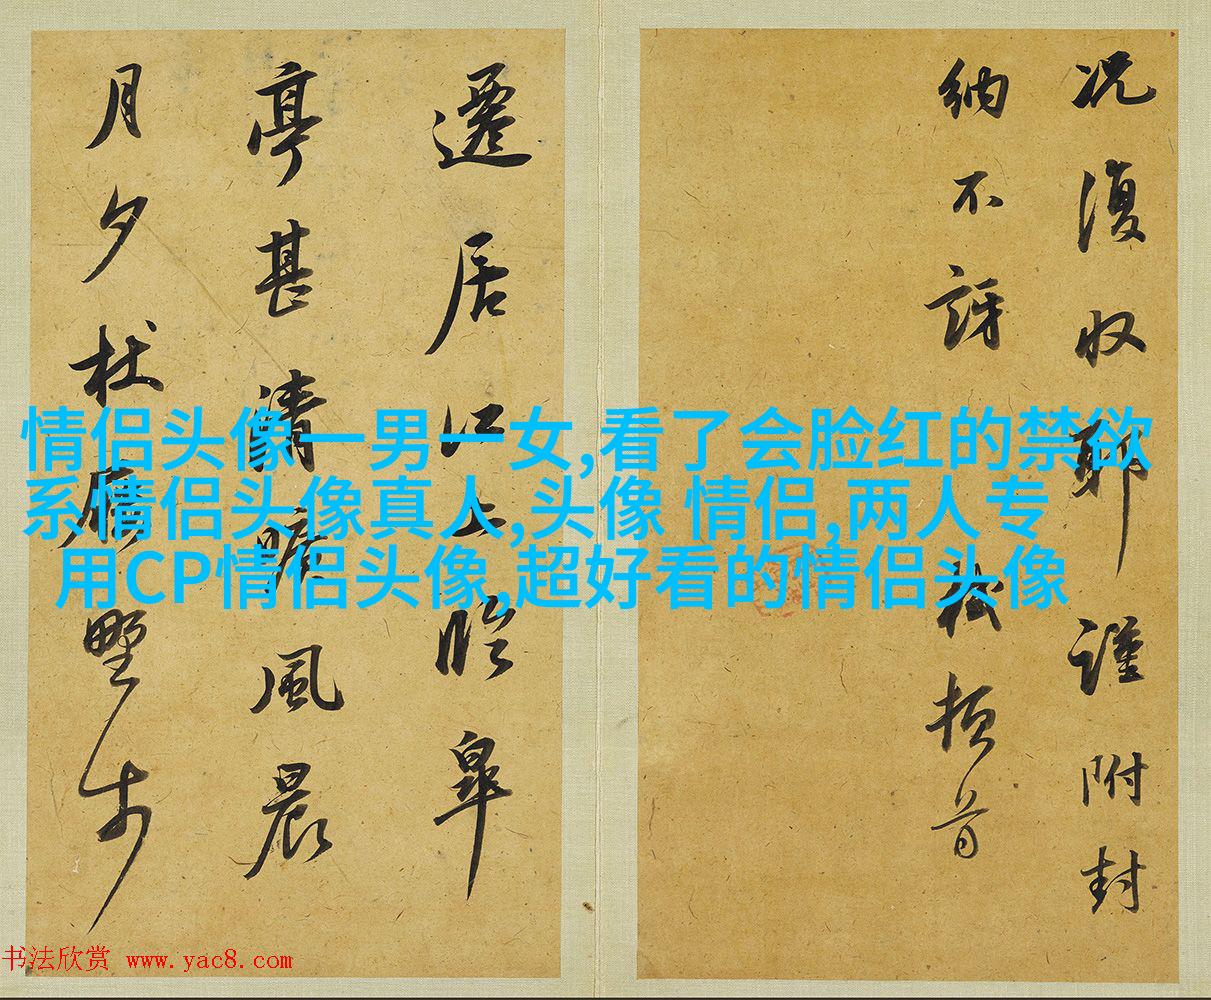 况復収耶謹附封
納不訝 松頓首
遷居江上臨皐
亭甚清曠風晨
月夕杖屨野步
情侣头像一男一女,看了会脸红的禁欲
系情侣头像真人,头像 情侣,两人专
用CP情侣头像,超好看的情侣头像
书法欣赏 www.yac8.com